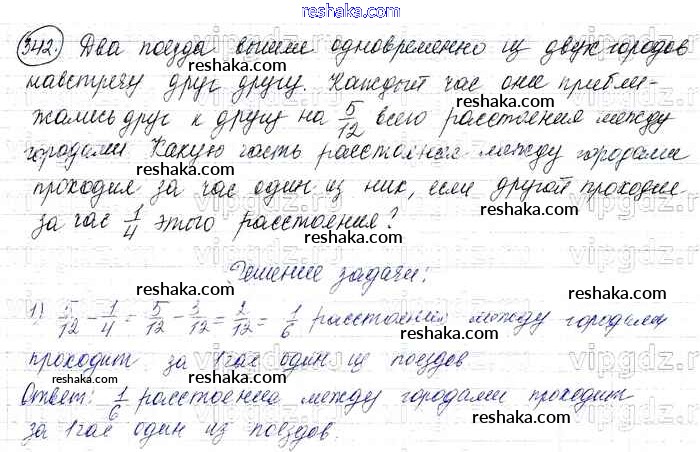 reshaka.ru
342. Два поезда вышли одновременно из двух городов
навстречу друг другу. Каждый час они прибли-
жались друг к другу на 5/12 всего расстояния между
городами. Какую часть расстояния между городами
проходил за час один из них, если другой проходил
за час 1/4 этого расстояния?
Решение задачи:
1) 5/12 - 1/4 = 5/12 - 3/12 = 2/12 = 1/6 расстояния между городами
проходит за 1 час один из поездов
Ответ: 1/6 расстояния между городами проходит
за 1 час один из поездов.
reshaka.ru